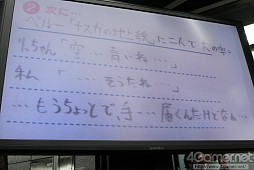 ② 次に…
ペルー「ナスカの地上絵」に二人で
ちゃん「空…青いね…」
私「…そうだね…」
…もうちょっとで、手…届くんだけどなぁ…
4Gamer.net